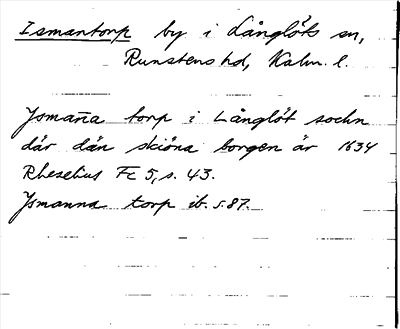 Ismantorp by i Långlöts sn,
Runstens hd, Kalm. l.
Jsmaña torp i Långlöt sochn
där dän skiöna borgen är 1634
Rhezelius Fc 5, s. 43.
Jsmanna torp ib. s. 87.